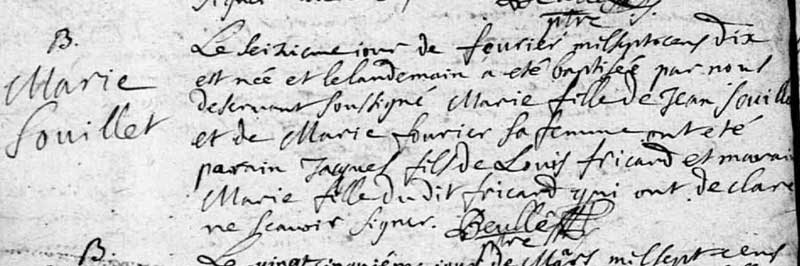 ptre
B.
Marie
Souillet
Le seiziemejour de feurier milseptcens dix
est née et lelandemain a eté baptiseé par nous
deservant soussigné Marie fille de Jean Souill
et de Marie fourier sa femme ont eté
parain Jacques fils de Louis fricard et marai
Marie fille dudit fricard qui ont declaré
ne scavoir signer.
ptre
B.
Le vingt cinquiéme jour de Mars millsept cens